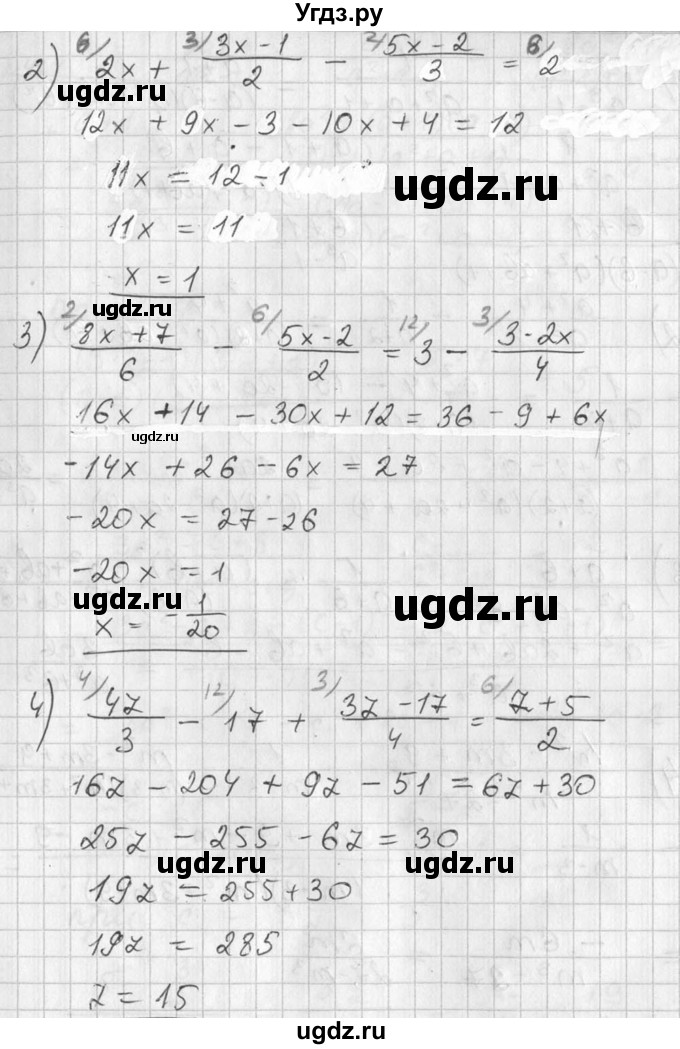 Угдз.ру
2) 6/ 2x + 3/ (3x - 1)/2 - 2/ (5x - 2)/3 = 6/ 2
ugdz.ru
12x + 9x - 3 - 10x + 4 = 12
11x = 12 - 1
ugdz.ru ugdz.ru
11x = 11
x = 1
ugdz.ru
3) 2/ (8x + 7)/6 - 6/ (5x - 2)/2 = 12/ 3 - 3/ (3 - 2x)/4
16x + 14 - 30x + 12 = 36 - 9 + 6x
ugdz.ru
-14x + 26 - 6x = 27
-20x = 27 - 26
-20x = 1
ugdz.ru ugdz.ru
x = - 1/20
4) 4/ 4z/3 - 12/ 17 + 3/ (3z - 17)/4 = 6/ (z + 5)/2
16z - 204 + 9z - 51 = 6z + 30
25z - 255 - 6z = 30
ugdz.ru ugdz.ru
19z = 255 + 30
19z = 285
z = 15
ugdz.ru